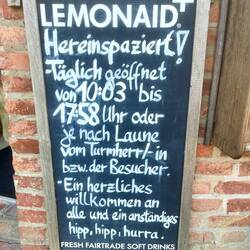 LEMONAID+
Hereinspaziert!
-Täglich geöffnet
von 10:03 bis
17:58 Uhr oder
je nach Laune
vom Turmherr/-in
bzw. der Besucher.
-Ein herzliches
willkommen an
alle und ein anständiges
hipp, hipp, hurra.
FRESH FAIRTRADE SOFT DRINKS